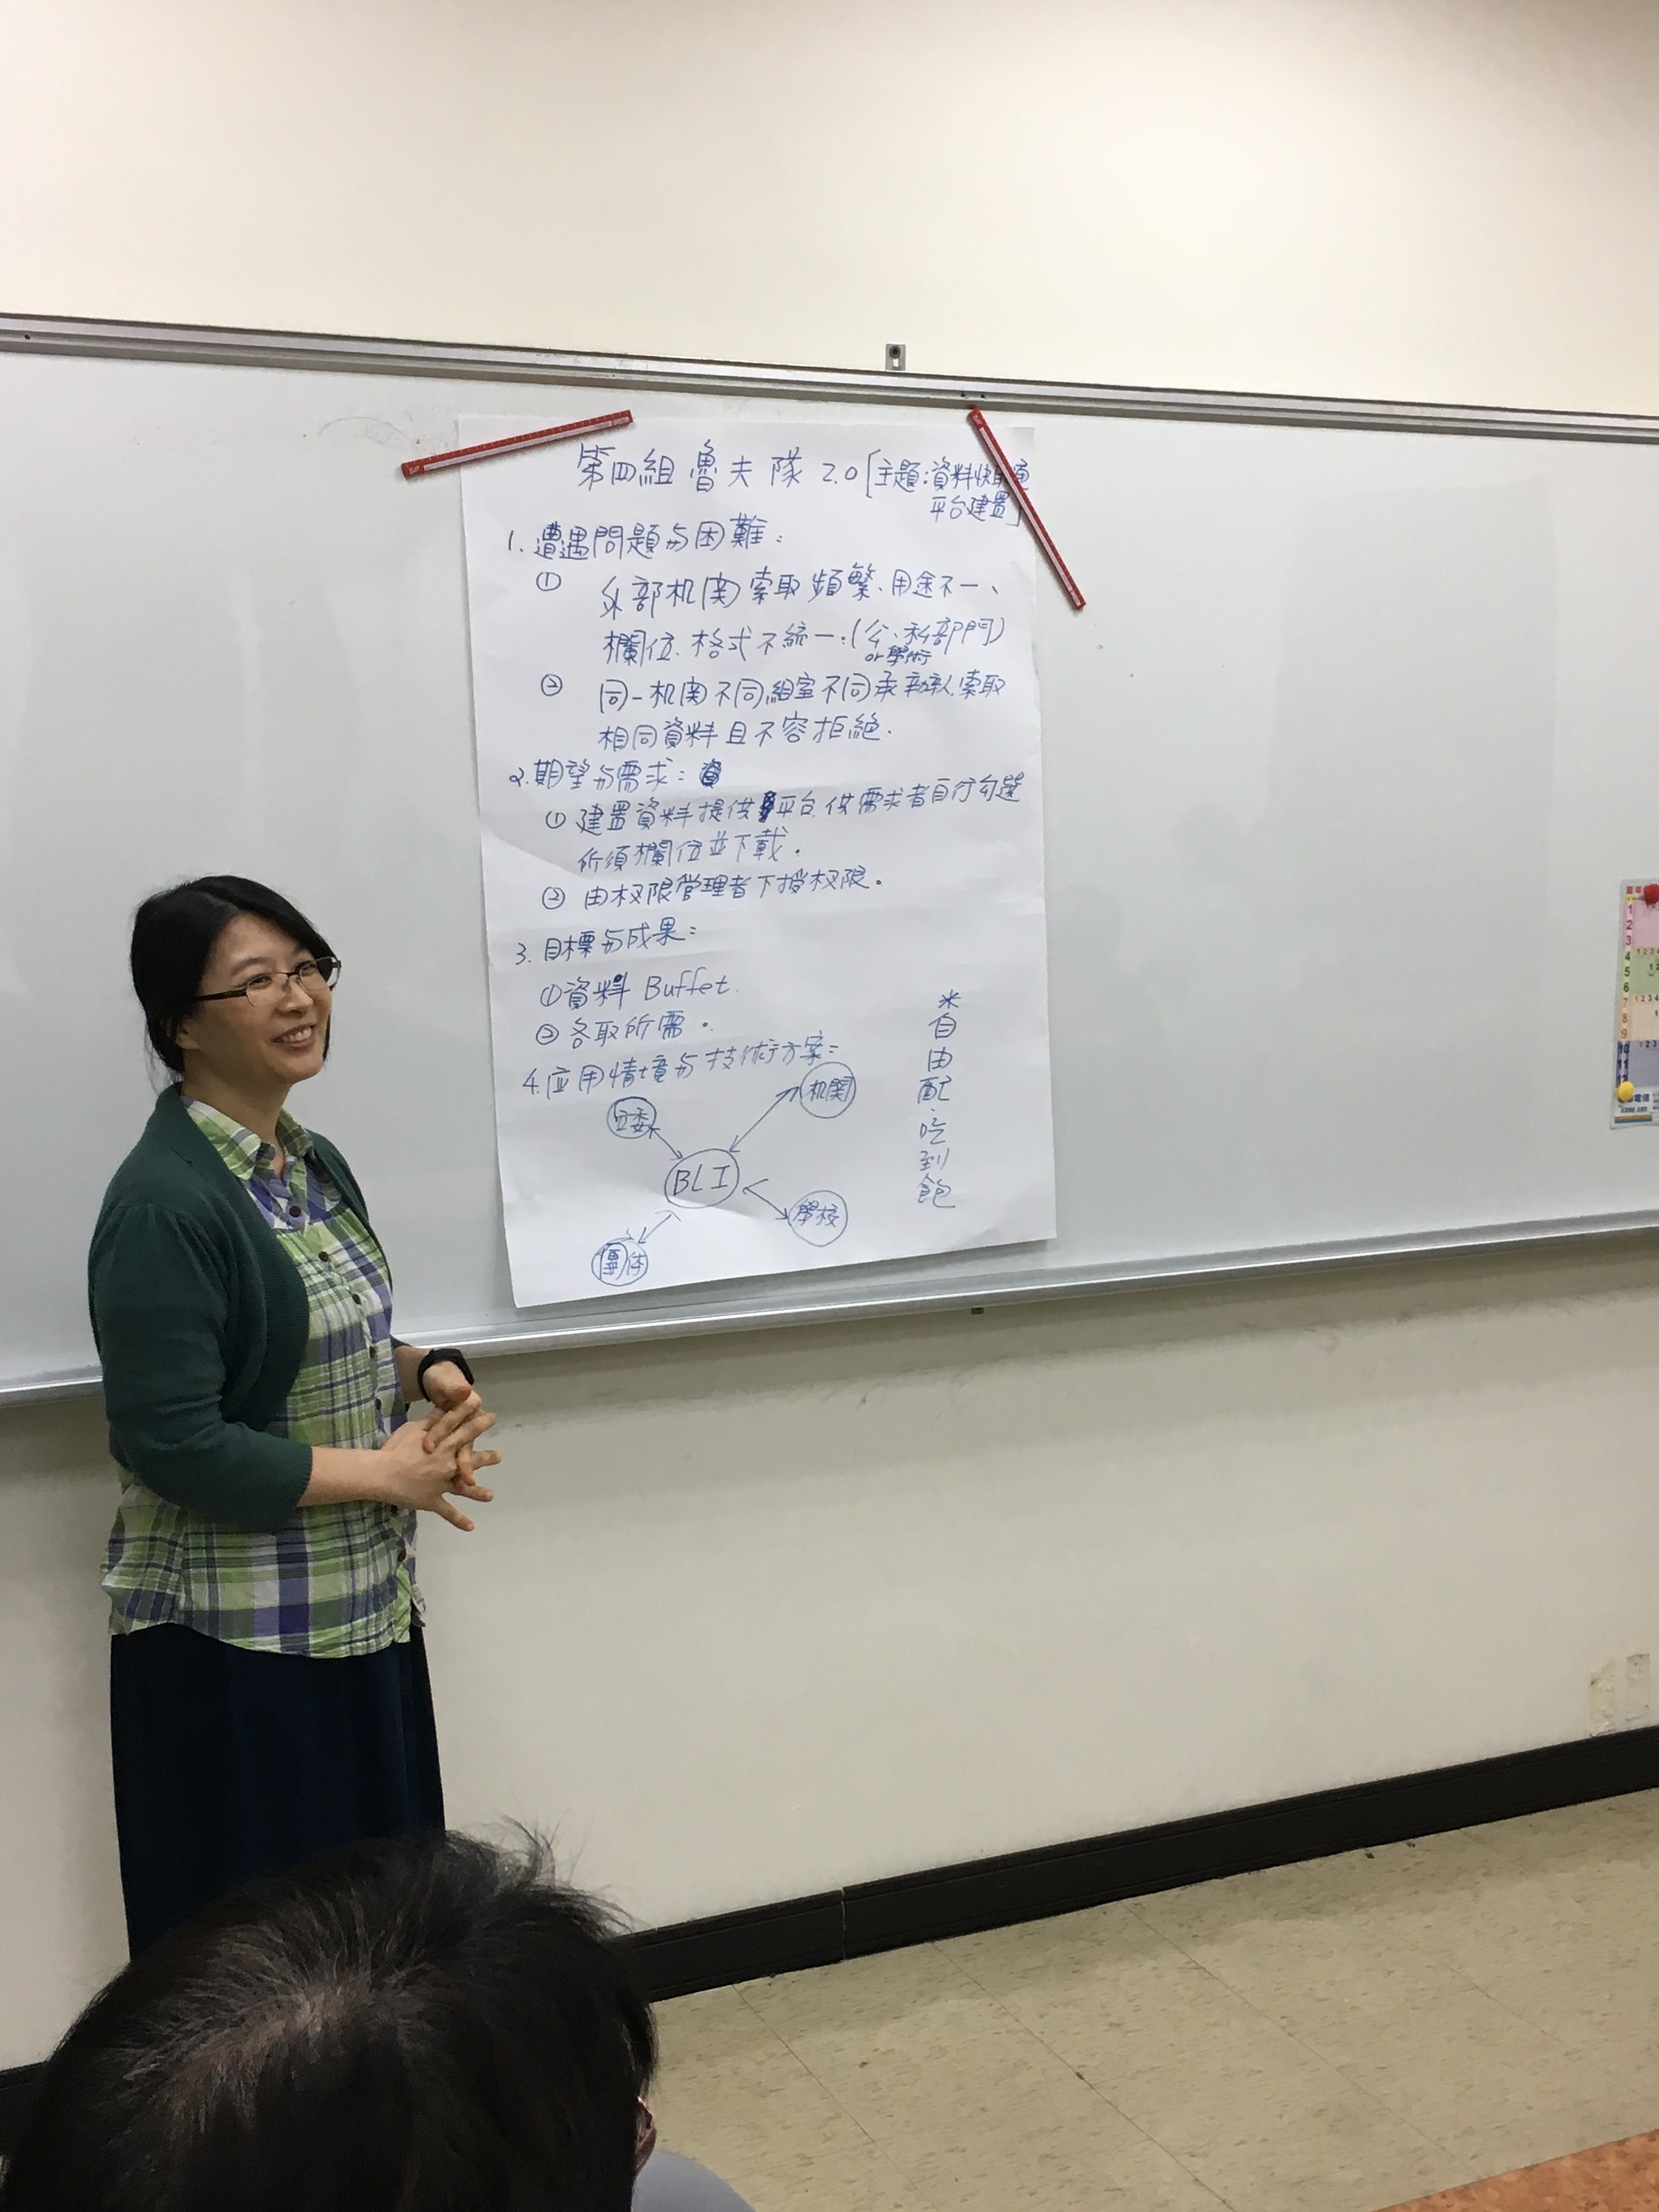 第四組 魯夫隊 2.0 [主題:資料快取通
平台建置]
1. 遭遇問題与困難:
① 外部机関索取頻繁、用途不一、
欄位、格式不統一.(公、私部門)
or 學術
② 同一机関不同組室不同承辦人索取
相同資料且不容拒絶.
2.期望与需求: 資
① 建置資料提供平台,供需求者自行勾選
所須欄位並下載。
② 由权限管理者下授权限。
3. 目標与成果:
①資料 Buffet.
② 各取所需.
4.应用情境与技術方案:
机関
立委
BLI
學校
媒体
※
自
由
配
、
吃
到
飽